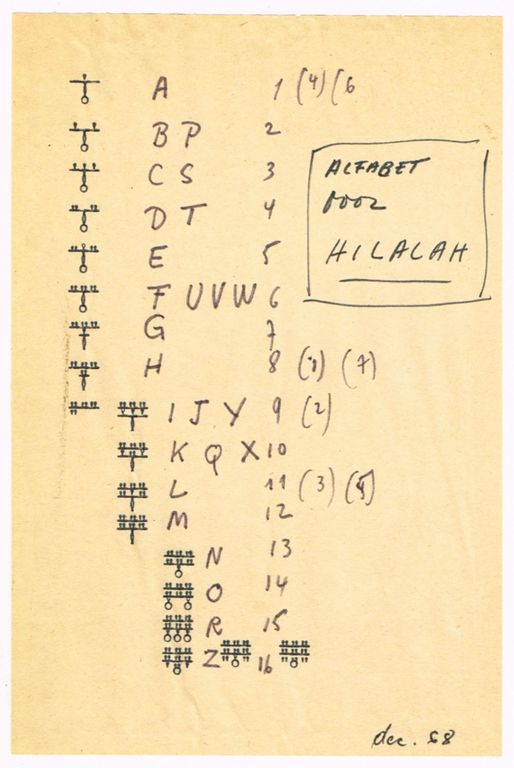 A 1 (4) (6
B P 2
C S 3
D T 4
E 5
F U V W 6
G 7
H 8 (1) (7)
I J Y 9 (2)
K Q X 10
L 11 (3) (5)
M 12
N 13
O 14
R 15
Z 16
ALFABET
VOOR
HILALAH
dec. 88